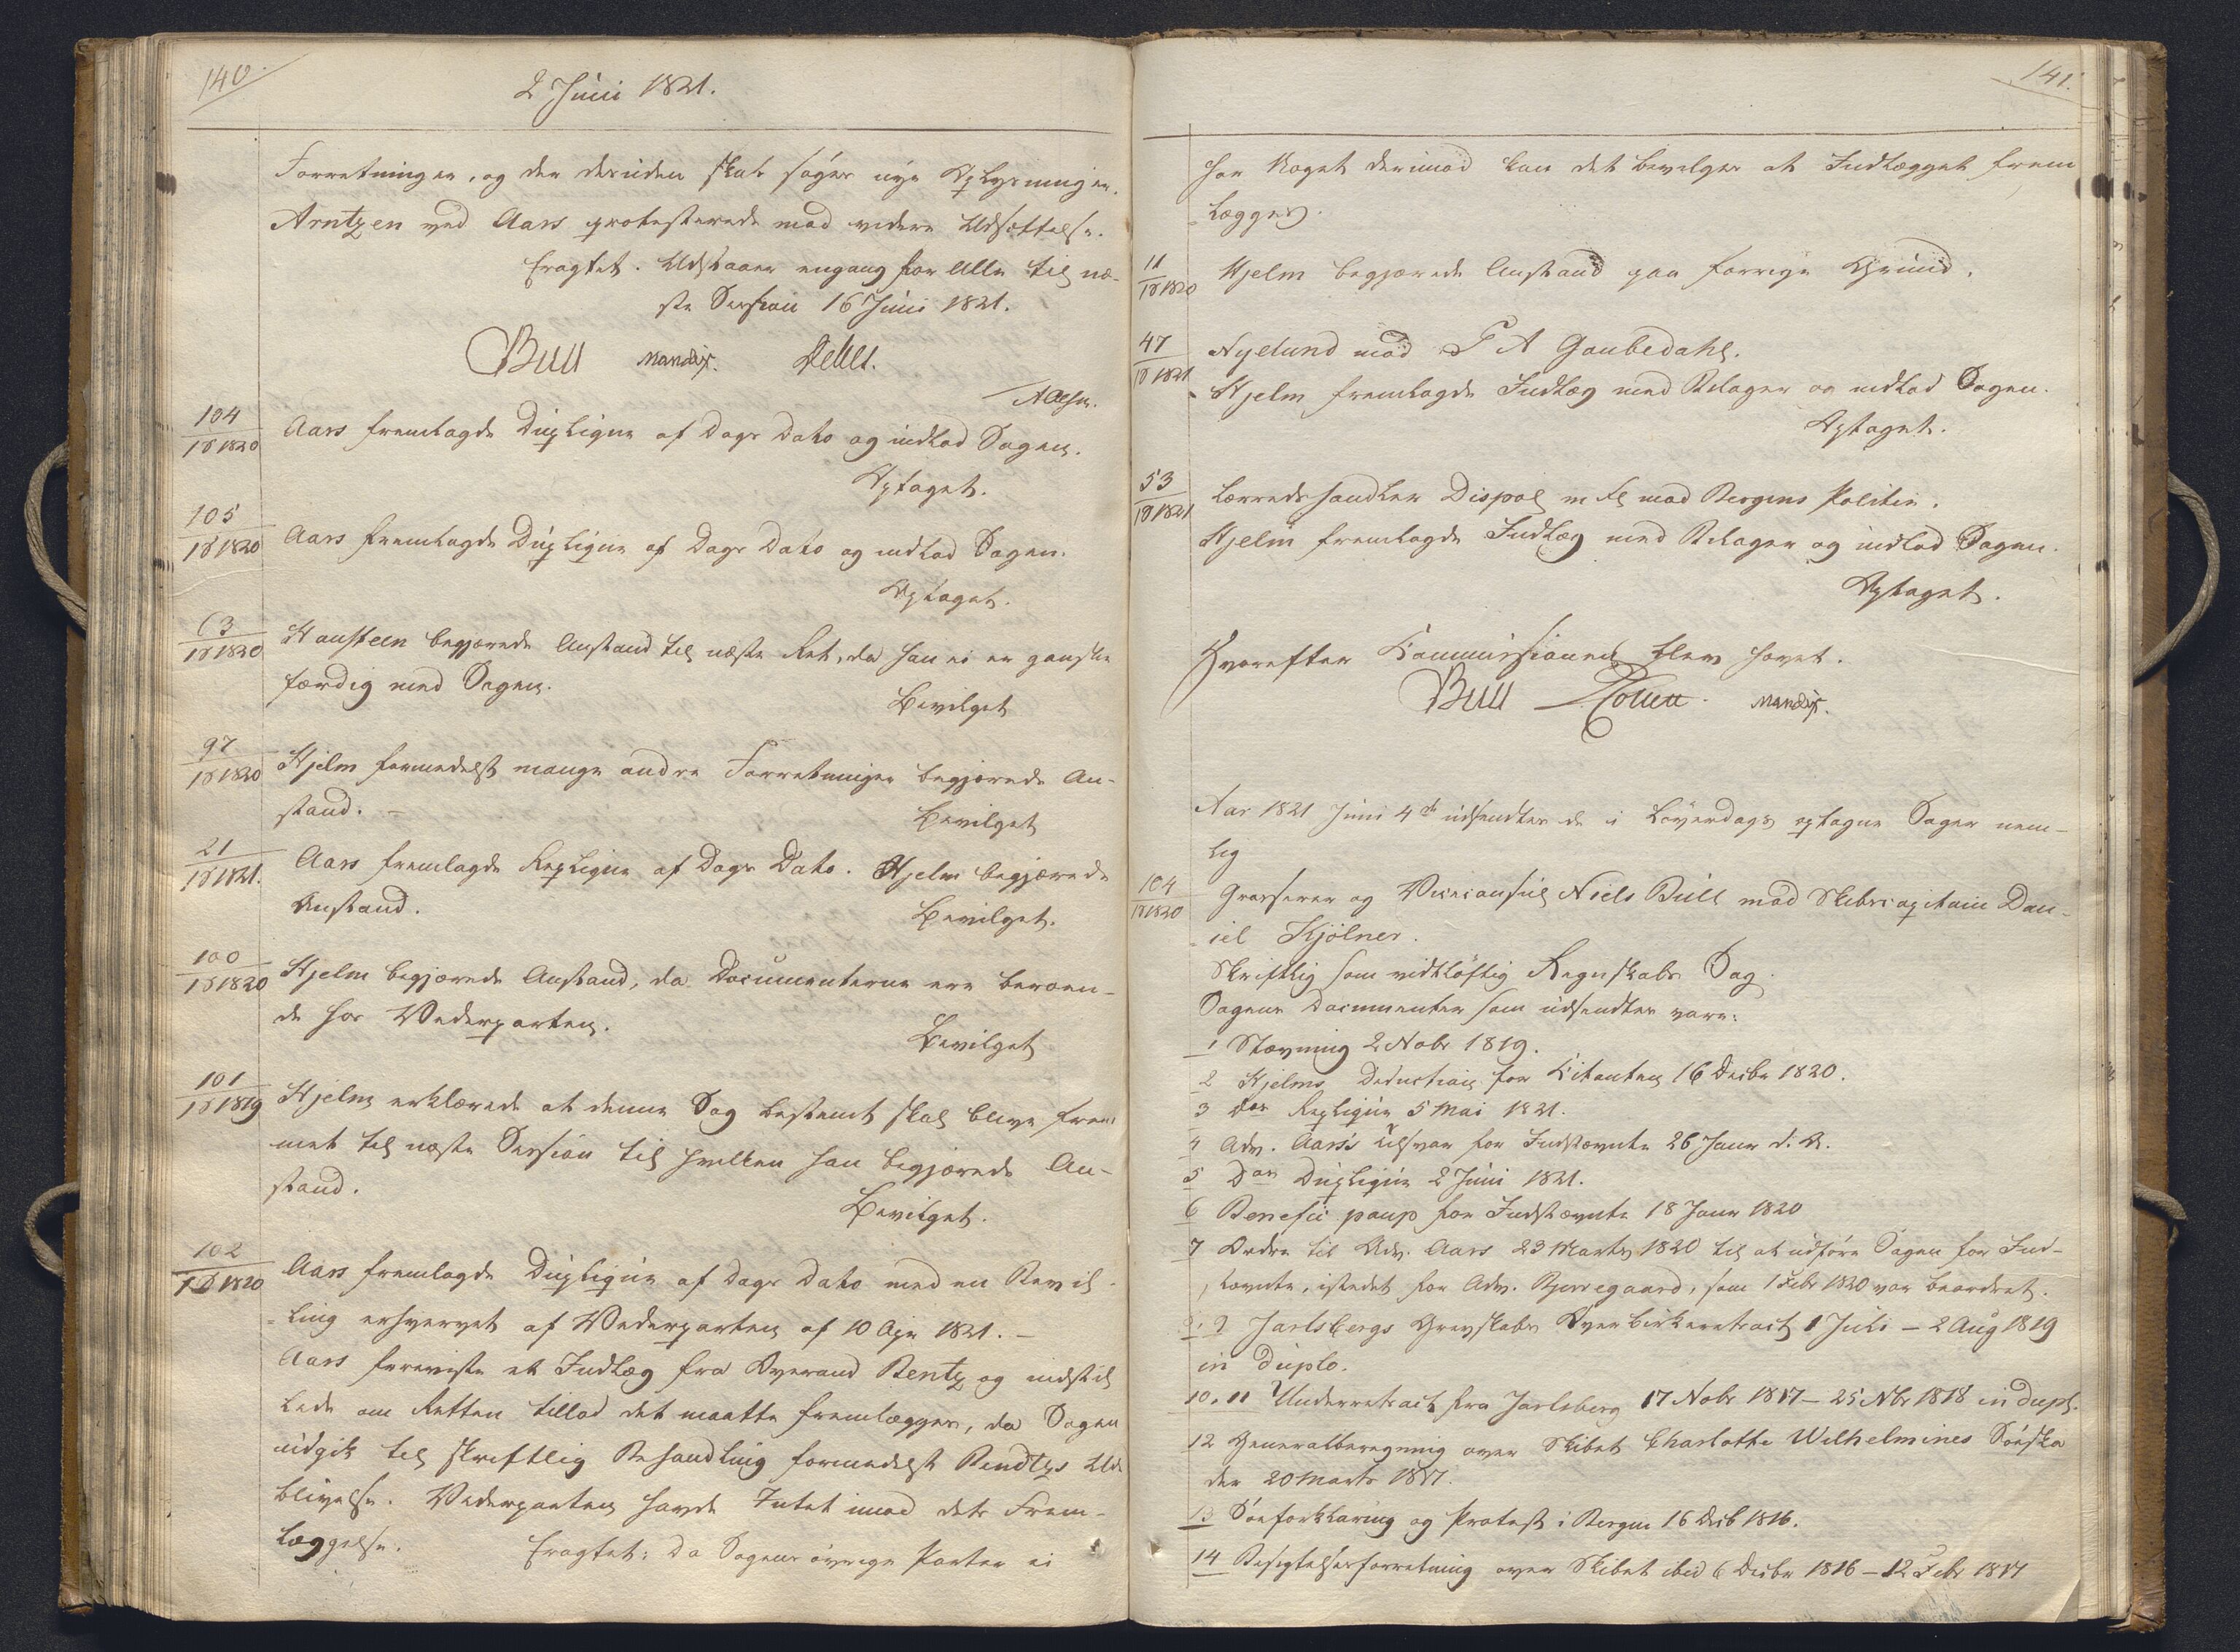 140.
2 Juni 1821.
Forretninger, og der desuden skal søges nye Oplysninger.
Arntzen ved Aars protesterede mod videre Udsættelse.
Eragtet. Udstaaer engang for Alle til næ-
ste Session 16 Juni 1821.
Bull Mandix. Debes.
104
18 1820
Aars fremlagde Dupliqve af Dags Dato og indlod Sagen.
Optaget.
105
18 1820
Aars fremlagde Dupliqve af Dags Dato og indlod Sagen.
Optaget.
63
18 1820
Hansteen begjærede Anstand til næste Ret, da han ei er ganske
færdig med Sagen.
Bevilget
97
18 1820
Hjelm formedelst mange andre Forretninger begjærede An-
stand. –
Bevilget
21
18 1821.
Aars fremlagde Repliqve af Dags Dato. Hjelm begjærede
Anstand.
Bevilget.
100
18 1820
Hjelm begjærede Anstand, da Documenterne ere beroen-
de hos Vederparten.
Bevilget
101
18 1819
Hjelm erklærede at denne Sag bestemt skal blive frem
met til næste Session til hvilken han begjærede An-
stand.
Bevilget.
102
18 1820
Aars fremlagde Dupliqve af Dags Dato med en Bevil-
ling erhvervet af Vederparten af 10 Apr 1821. –
Aars foreviste et Indlæg fra Qvarand Bentz og indstil
lede om Retten tillod det maatte fremlægges, da Sagen
udgik til skriftlig Behandling formedelst Bendtzs Ude
blivelse. Vederparten havde Intet imod dets Frem-
læggelse.
Eragtet: Da Sagens øvrige Parter ei
141.
har Noget derimod kan det bevilges at Indlægget frem
lægges.
11
18 1820
Hjelm begjærede Anstand paa forrige Grund.
47
18 1821
Nyelund mod A Gaubedahl.
Hjelm fremlagde Indlæg med Bilager og indlod Sagen.
Optaget.
53
18 1821
Lærredshandler Dispol m fl mod Bergens Politie.
Hjelm fremlagde Indlæg med Bilager og indlod Sagen.
Optaget.
Hvorefter Commissionen blev hævet.
Bull Mandix.
Aar 1821 Juni 4de udsendtes de i Løverdags optagne Sager nem-
lig
104
18 1820
Grosserer og Viceconsul Niels Bull mod Skibscapitain Dan-
iel Kjölner.
Skriftlig som vidtløftig Regnskabs Sag.
Sagens Documenter som udsendtes vare:
1 Stævning 2 Nobr 1819.
2 Hjelms Deduction for Citanten 16 Decbr 1820.
3 Des Repliqve 5 Mai 1821.
4 Adv. Aars's Tilsvar for Indstævnte 26 Janr d. A.
5 Des Dupliqve 2 Juni 1821.
6 Benefic paup for Indstævnte 18 Janr 1820
7 Ordre til Adv. Aars 23 Marts 1820 til at udføre Sagen for Ind-
stævnte, istedet for Adv. Bjerregaard, som 1 Febr 1820 var beordret.
8. 9 Jarlsbergs Grevskabs Overbirkeretsact 1 Juli – 2 Aug 1819
in duplo.
10. 11 Underretsact fra Jarlsberg 17 Nobr 1817 – 25 Nbr 1818 in dupl.
12 Generalberegning over Skibet Charlotte Wilhelmines Söeska
der 20 Marts 1817.
13 Söeforklaring og Protest i Bergen 16 Decb 1816.
14 Besigtelsesforretning over Skibet ibid 6 Decbr 1816 – 12 Febr 1817